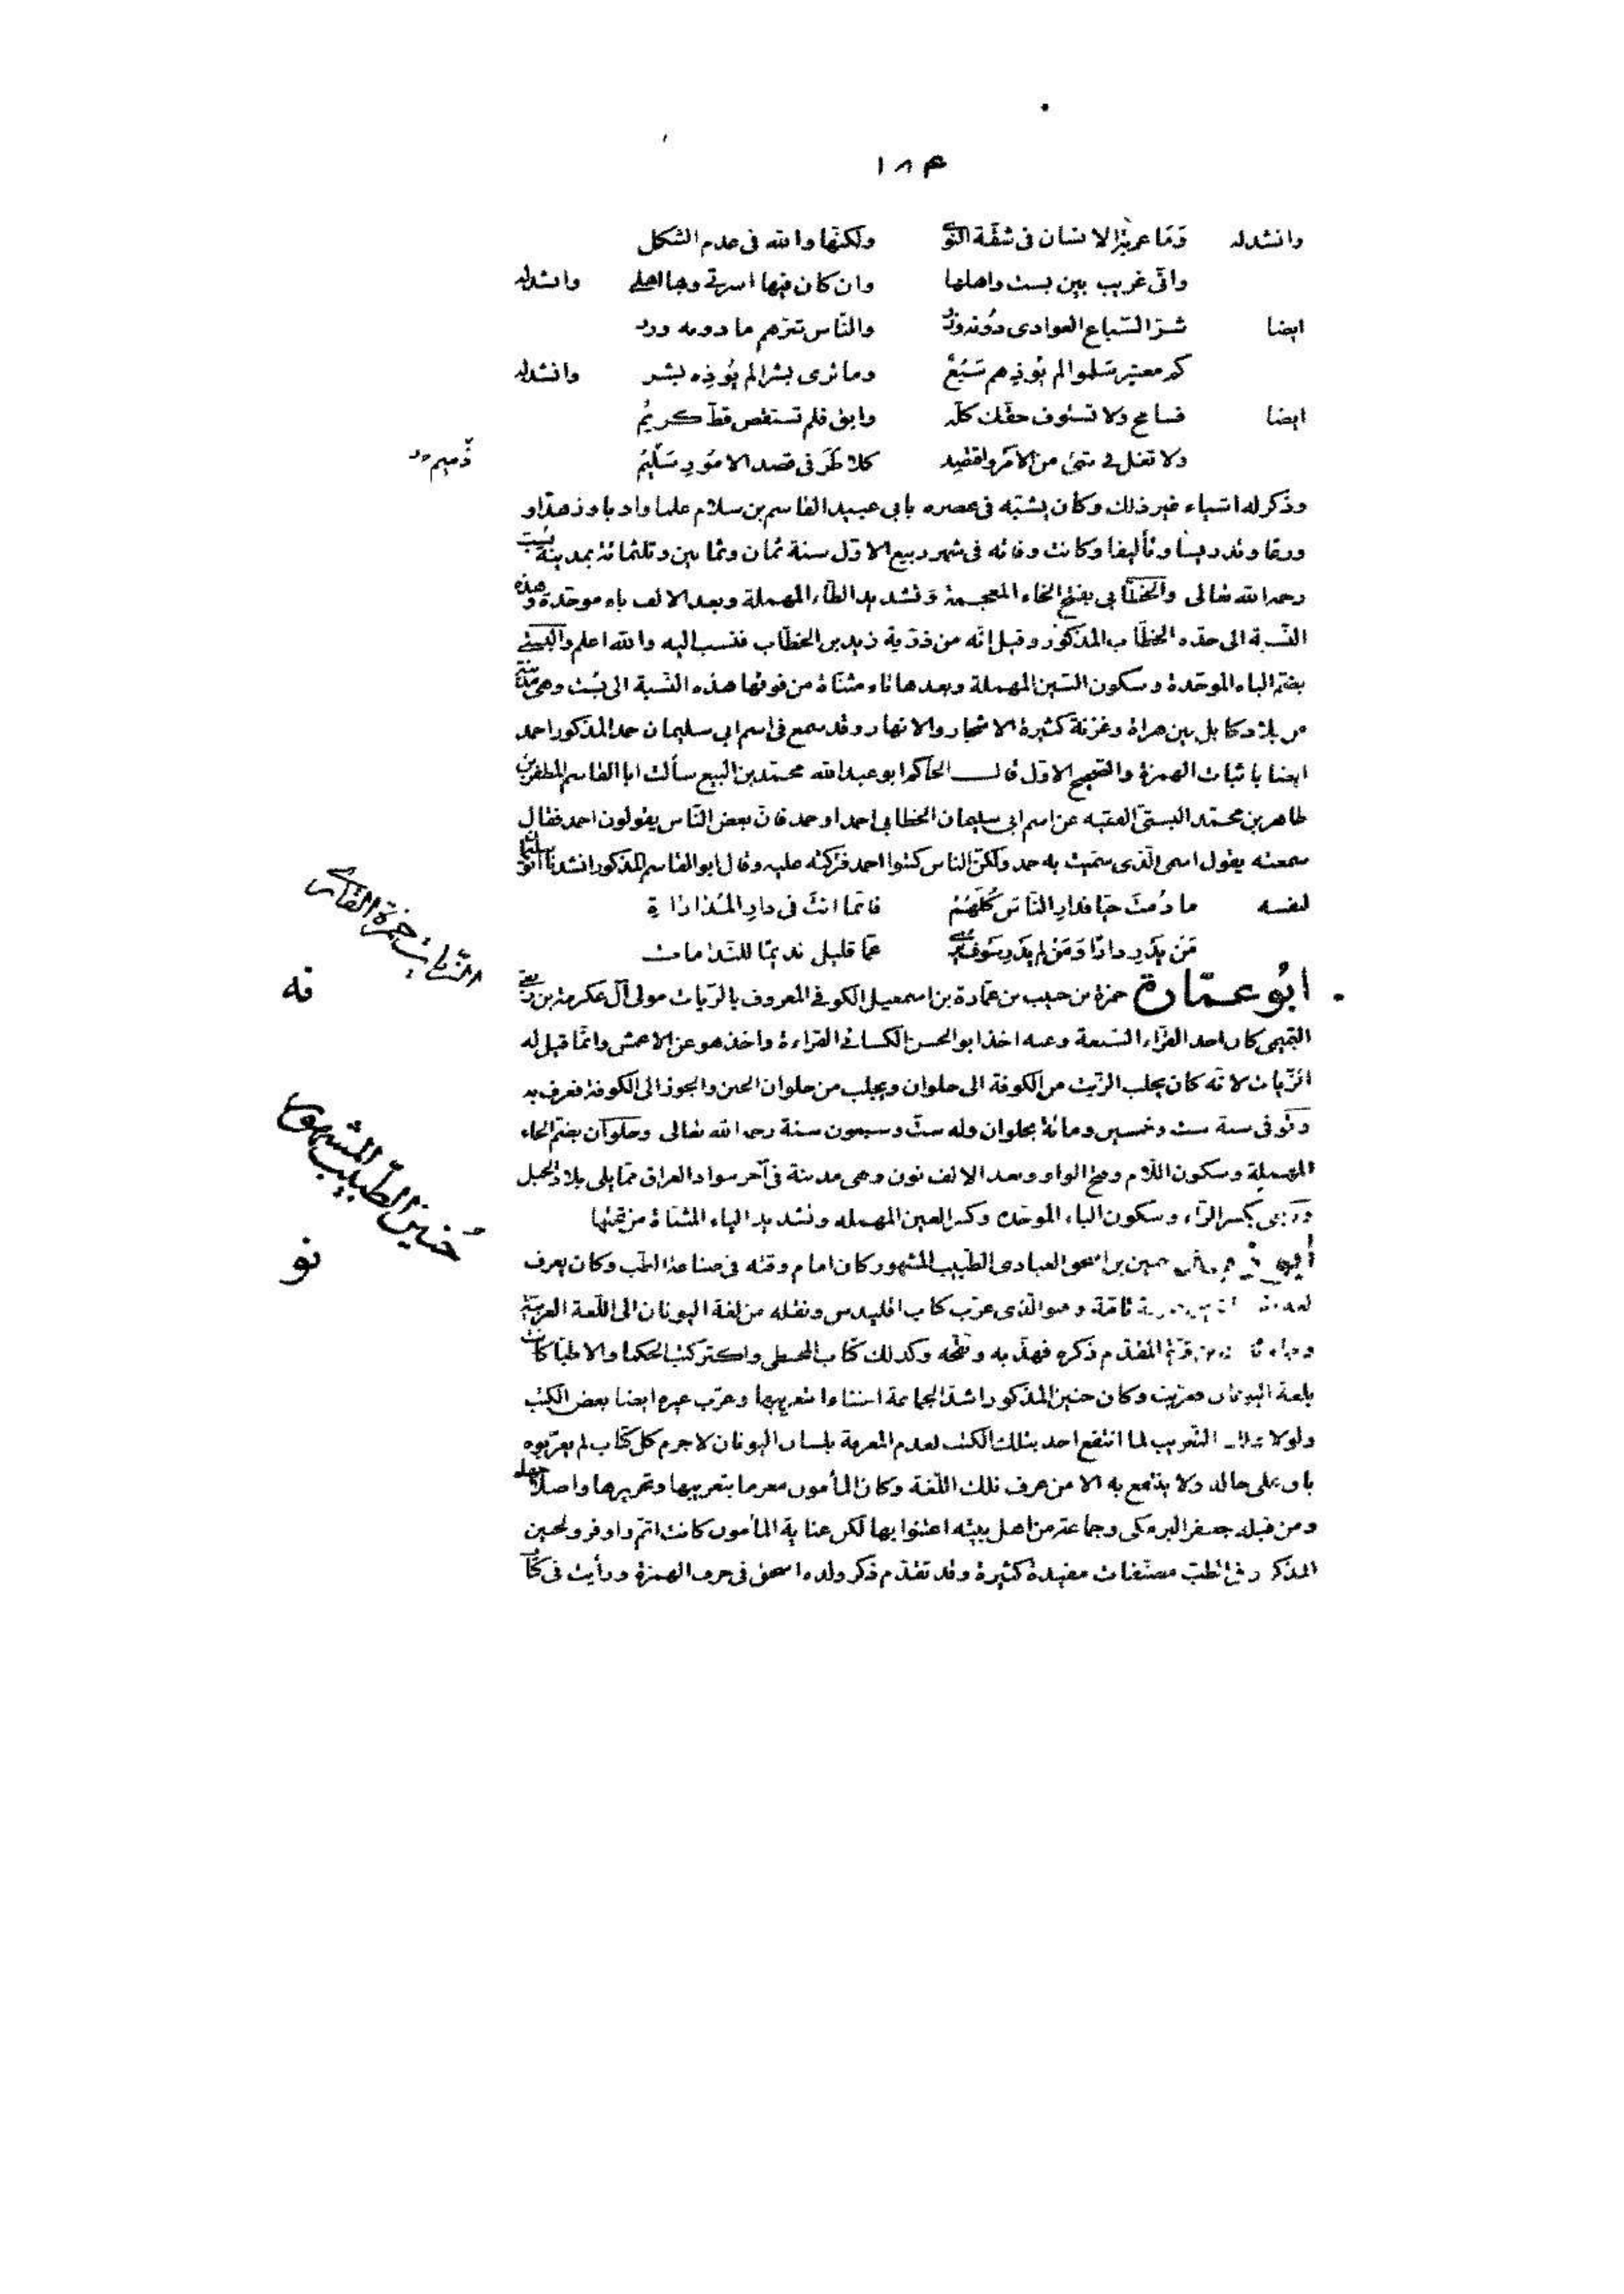 ١٨٤
وانشدله وَمَا غربة الانسان فى شقّة النّوى ولكنّها والله فى عدم الشكل
وانّى غريب بين بست واهلها وان كان فيها اسرتى وبها اهلى وانشدله
ايضا شرّ السّباع العوادى دُونه وزر والنّاس شرّهم ما دونه وزر
كم معشر سَلموا لم يُوذهم سَبُعٌ وما نرى بشرا لم يُوذه بشر وانشدله
ايضا فسامح ولا تستوف حقّك كلّه وابق فلم تستقص قطّ كريمُ
ولا تغل فى شئ من الامر واقتصد كلا طَرَفى قصد الامُورِ سَلِيمُ
ذَميم
وذكر له اشياء غير ذلك وكان يشبّه فى عصره بابى عبيد القاسم بن سلام علما وادبا وزهدا و
ورعا وتدريسا وتأليفا وكانت وفاته فى شهر ربيع الاوّل سنة ثمان وثمانين وثلثمائة بمدينة بُست
رحمه الله تعالى والخطّابى بفتح الخاء المعجمة وتشديد الطّاء المهملة وبعد الالف باء موحّدة وهذه
النّسبة الى جدّه الخطّاب المذكور وقيل انّه من ذرّية زيد بن الخطّاب فنسب اليه والله اعلم والبستى
بضم الباء الموحّدة وسكون السّين المهملة وبعدها تاء مثنّاة من فوقها هذه النّسبة الى بُست وهى مدينة
من بلاد كابل بين هراة وغزنة كثيرة الاشجار والانهار وقد سمع فى اسم ابى سليمان حمد المذكور احمد
ايضا باثبات الهمزة والصّحيح الاوّل قال الحاكم ابو عبد الله محمّد بن البيع سألت ابا القاسم المظفر بن
طاهر بن محمّد البستى الفقيه عن اسم ابى سليمان الخطابى احمد او حمد فانّ بعض النّاس يقولون احمد فقال
سمعته يقول اسمى الّذى سمّيت به حمد ولكنّ الناس كتبوا احمد فتركته عليه وقال ابو القاسم المذكور انشدنا ابو سليمان
لنفسه ما دُمتَ حيّا فدارِ النّاسَ كُلَّهُمُ فانّما انتَ فى دارِ المُداراةِ
مَن يَدرِ دارَى وَمَن لم يَدرِ سَوفَ يُرى عمّا قليل نديمًا للنّدامات
ابُو عمّارة حمزة بن حبيب بن عمّارة بن اسمعيل الكوفى المعروف بالزّيات مولى آل عكرمة بن ربعى
التّيمى كان احد القرّاء السّبعة وعنه اخذ ابو الحسن الكسائى القراءة واخذ هو عن الاعمش وانّما قيل له
الزّيات لانّه كان يجلب الزّيت من الكوفة الى حلوان ويجلب من حلوان الجبن والجوز الى الكوفة فعرف به
وتوفى سنة ست وخمسين ومائة بحلوان وله ستّ وسبعون سنة رحمه الله تعالى وحلوان بضم الحاء
المهملة وسكون اللّام وفتح الواو وبعد الالف نون وهى مدينة فى آخر سواد العراق ممّا يلى بلاد الجبل
وربعى بكسر الرّاء وسكون الباء الموحّدة وكسر العين المهملة وتشديد الياء المثنّاة من تحتها
أبو زيد حنين بن اسحق العبادى الطّبيب المشهور كان امام وقته فى صناعة الطّب وكان يعرف
لغة تامّة وهو الّذى عرّب كتاب اقليدس ونقله من لغة اليونان الى اللّغة العربيّة
وجاء ثابت بن قرّة المقدّم ذكره فهذّبه ونقّحه وكذلك كتاب المجسطى واكثر كتب الحكما والاطبّا كانت
بلغة اليونان فعرّبت وكان حنين المذكور اشدّ الجماعة اعتناءا بتعريبها وعرّب غيره ايضا بعض الكتب
ولولا ذلك التّعريب لما انتفع احد بتلك الكتب لعدم المعرفة بلسان اليونان لا جرم كلّ كتاب لم يعرّبوه
باق على حاله ولا ينتفع به الا من عرف تلك اللّغة وكان المأمون مغرما بتعريبها وتحريرها واصلاحها
ومن قبله جعفر البرمكى وجماعة من اهل بيته اعتنوا بها لكن عناية المأمون كانت اتمّ واوفر ولحنين
المذكور فى الطّبّ مصنّفات مفيدة كثيرة وقد تقدّم ذكر ولده اسحق فى حرف الهمزة ورأيت فى كتاب
الزّيات حمزة القارى
قه
حُنين الطّبيب المشهور
نو